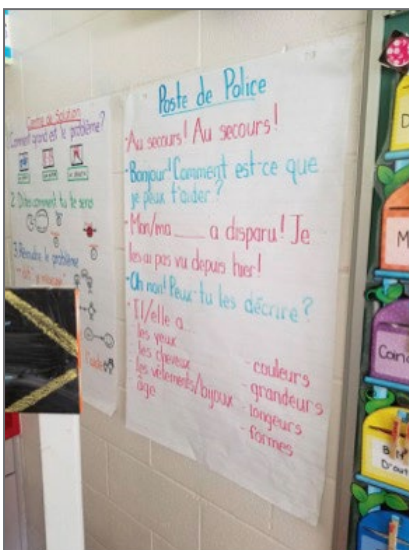 Centre de Solution
1. Comment grand est le problème?
2. Dites comment tu te sens
3. Résoudre le problème
Poste de Police
- Au secours! Au secours!
- Bonjour! Comment est-ce que
je peux t'aider?
- Mon/ma ____ a disparu! Je
les ai pas vu depuis hier!
- Oh non! Peux-tu les décrire?
- Il/elle a...
- les yeux
- les cheveux
- les vêtements/bijoux
- âge
- couleurs
- grandeurs
- longeurs
- formes
D
M
Coin